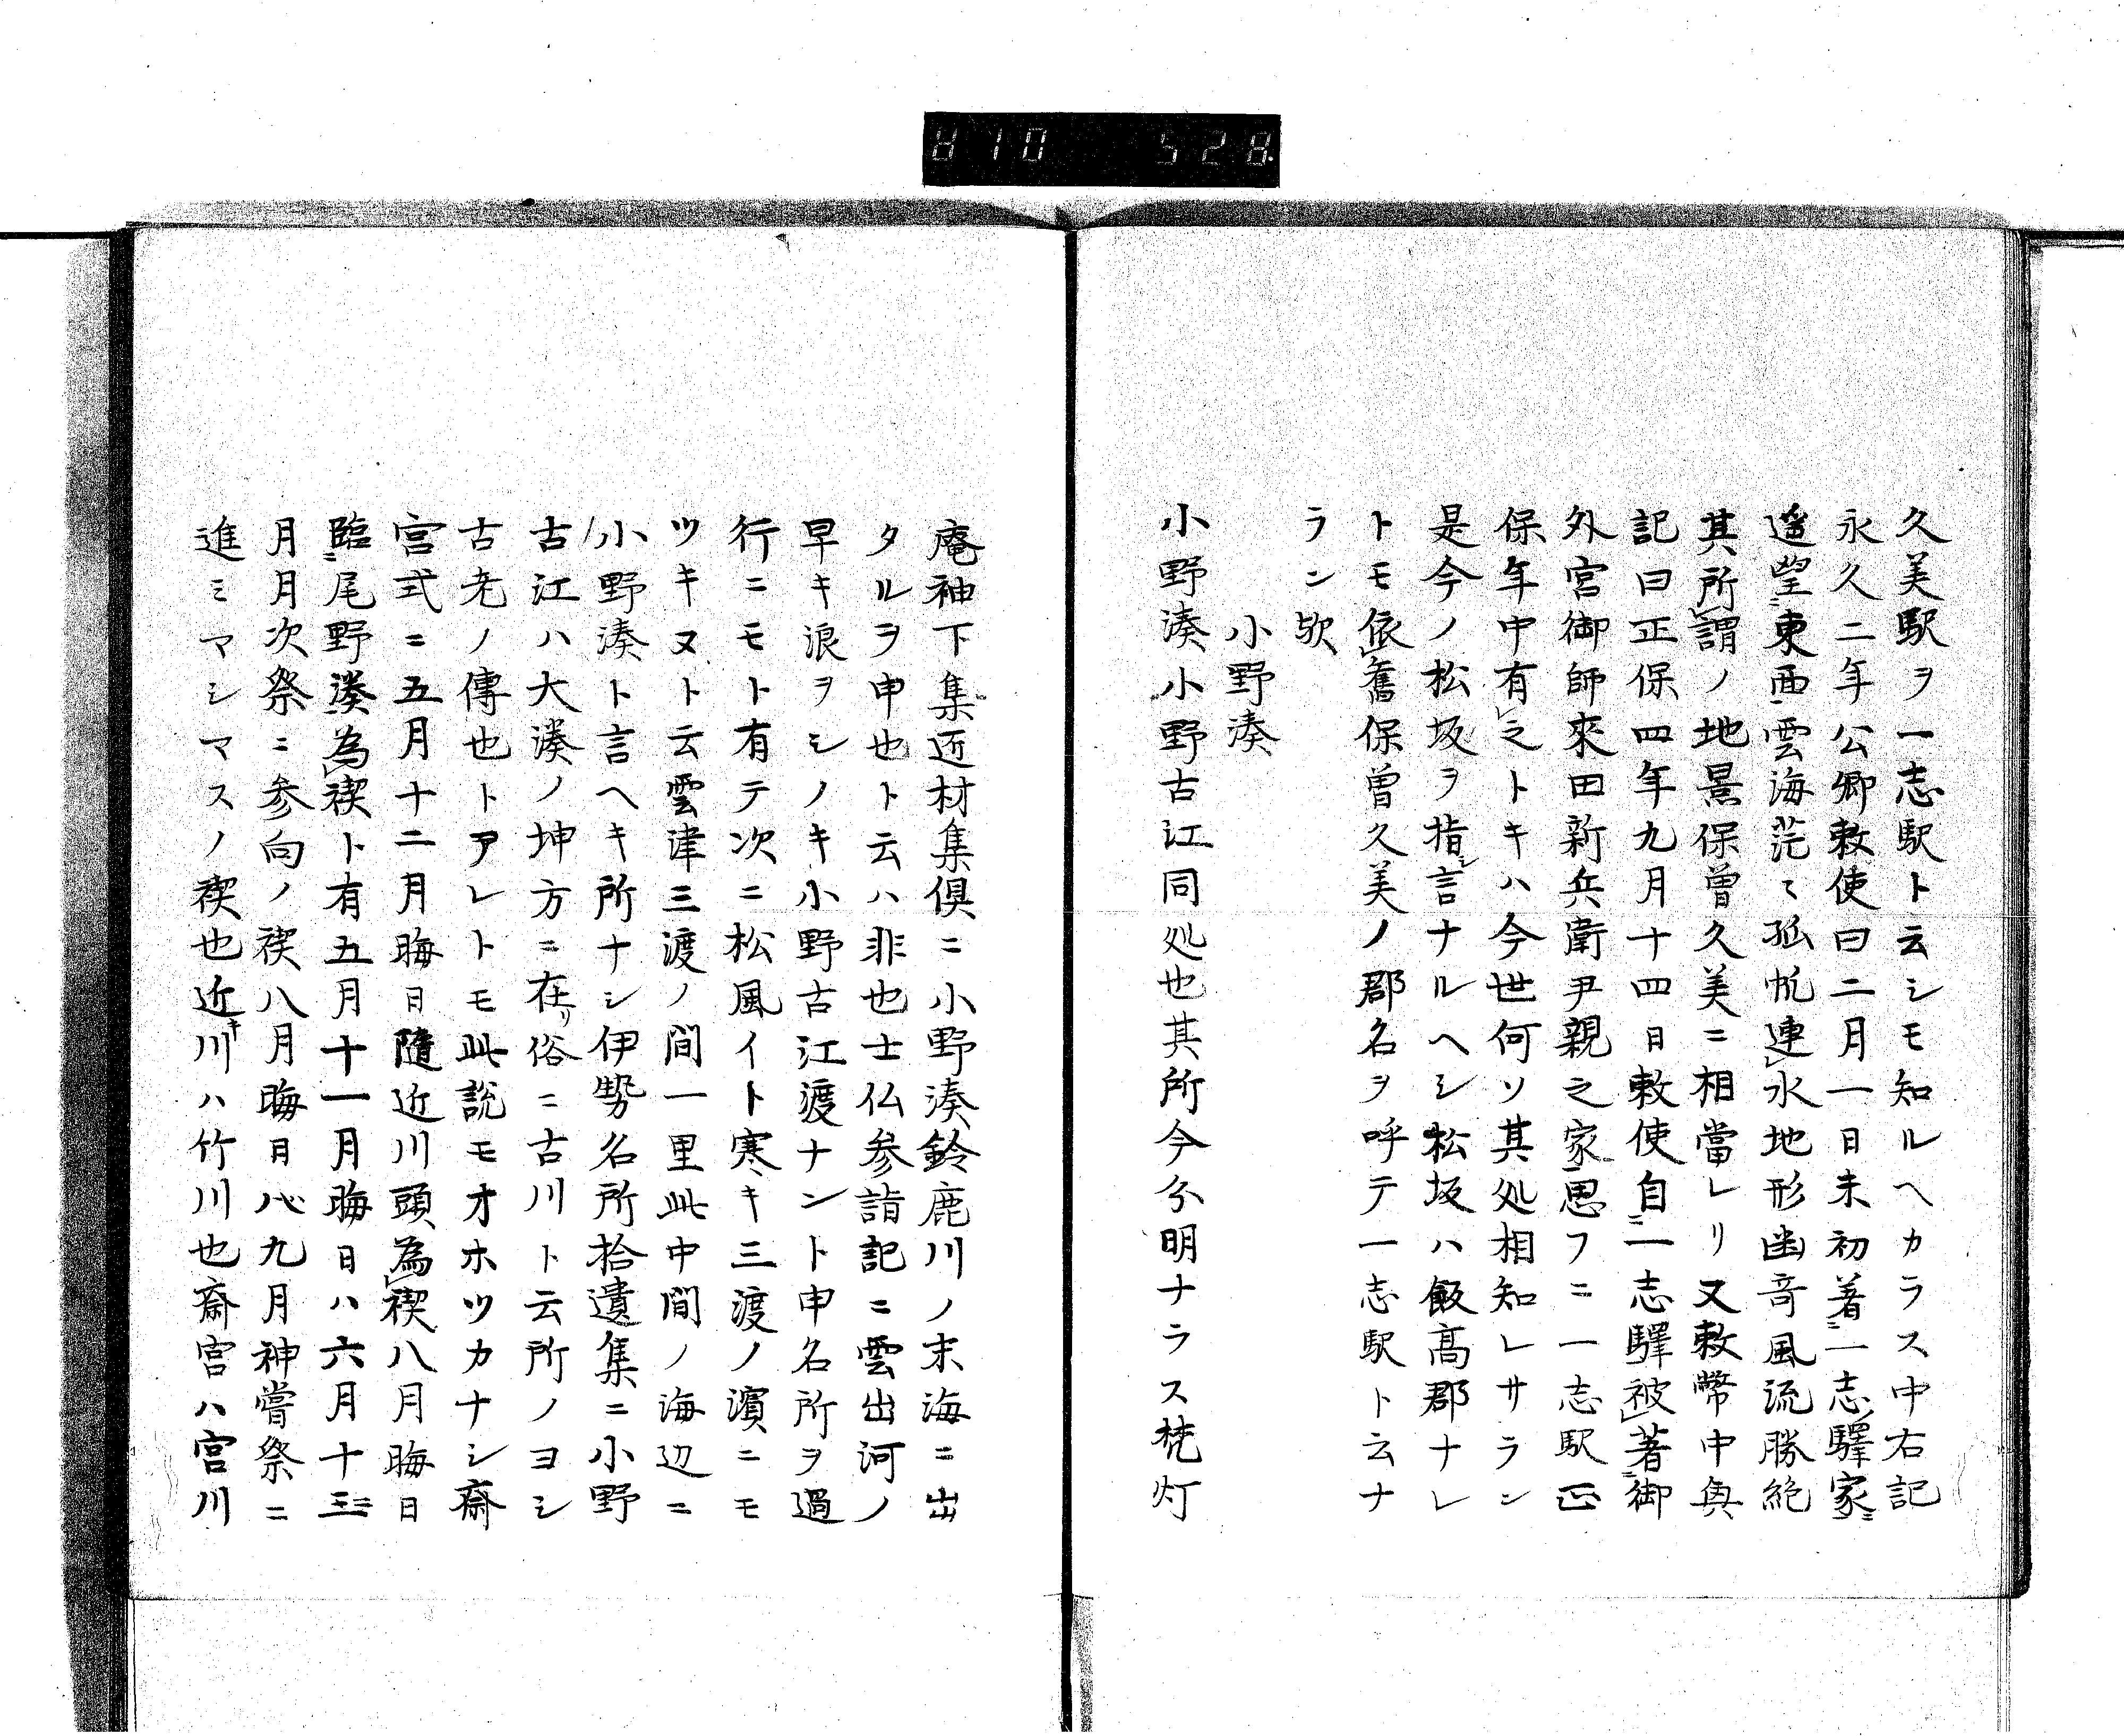 久美駅ヲ一志駅ト云シモ知ルヘカラス中右記
永久二年公卿敕使曰二月一日未初著一志驛家
遥望東西雲海茫々孤帆連水地形幽竒風流勝絶
其所謂ノ地景保曽久美ニ相當レリ又敕幣中臾
記曰正保四年九月十四日敕使自一志驛被著御
外宮御師來田新兵衛尹親之家思フニ一志駅正
保年中有之トキハ今世何ソ其処相知レサラン
是今ノ松坂ヲ指言ナルヘシ松坂ハ飯髙郡ナレ
トモ依舊保曽久美ノ郡名ヲ呼テ一志駅ト云ナ
ラン欤
小野湊
小野湊小野古江同処也其所今分明ナラス梵灯
庵袖下集近材集俱ニ小野湊鈴鹿川ノ末海ニ出
タルヲ申也ト云ハ非也士仏参詣記ニ雲出河ノ
早キ浪ヲシノキ小野古江渡ナント申名所ヲ過
行ニモト有テ次ニ松風イト寒キ三渡ノ濱ニモ
ツキヌト云雲津三渡ノ間一里此中間ノ海辺ニ
小野湊ト言ヘキ所ナシ伊勢名所拾遺集ニ小野
古江ハ大湊ノ坤方ニ在リ俗ニ古川ト云所ノヨシ
古老ノ傳也トアレトモ此説モオホツカナシ斎
宮式ニ五月十二月晦日隨近川頭為禊八月晦日
臨尾野湊為禊ト有五月十一月晦日ハ六月十二
月月次祭ニ参向ノ禊八月晦日ハ九月神嘗祭ニ
進ミマシマスノ禊也近キ川ハ竹川也斎宮ハ宮川
H10 528